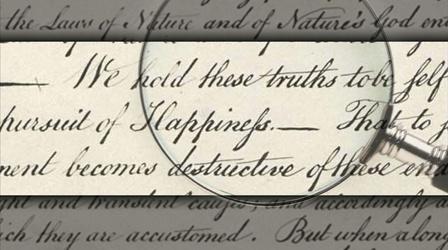 the Laws of Nature and of Nature's God en
We hold these truths to be self
pursuit of Happiness.— That to
ment becomes destructive of these end
ght and transient causes; and accordingly a
ich they are accustomed. But when a long